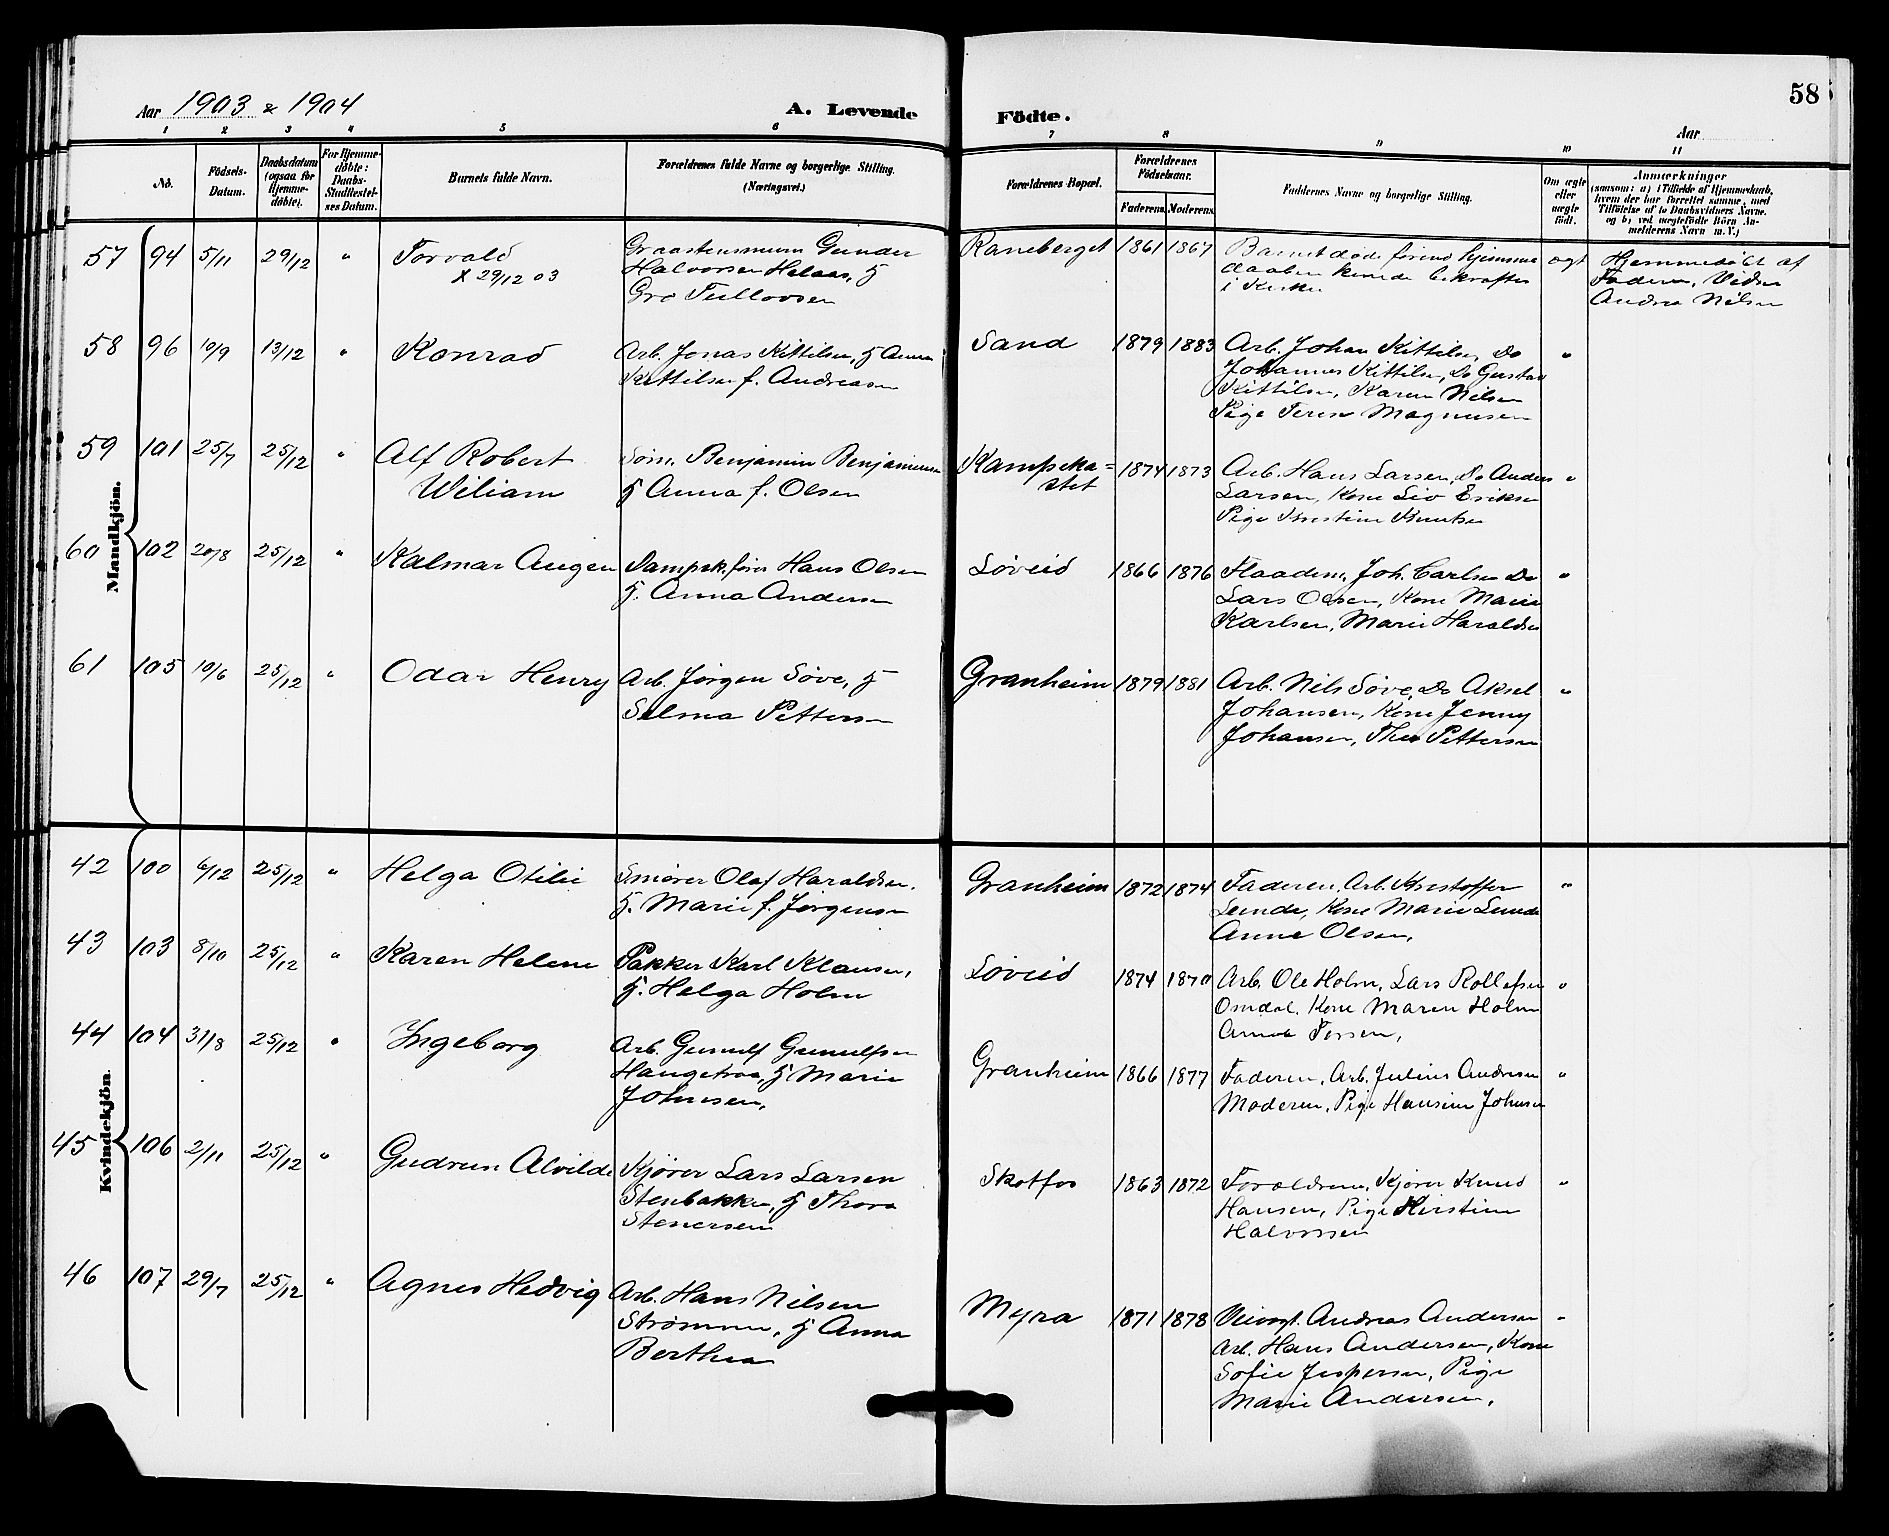 58
Aar 1903 & 1904
A. Levende Födte.
Aar
1 2 3 4 5 6 7 8 9 10 11
No.
Födsels-Datum.
Daabsdatum (ogsaa for Hjemme-döbte).
For Hjemme-döbte: Daabs-Stadfæstel-ses Datum.
Barnets fulde Navn.
Forældrenes fulde Navne og borgerlige Stilling. (Næringsvei.)
Forældrenes Bopæl.
Forældrenes Födselsaar.
Faderens. Moderens.
Faddernes Navne og borgerlige Stilling.
Om ægte eller uægte födt.
Anmærkninger
(saasom: a) i Tilfælde af Hjemmedaab, hvem der har forrettet samme, med Tilföielse af to Daabsvidners Navne, og b) ved uægtefödte Börn Anmelderens Navn m. V.)
Mandkjön.
57 94 5/11 29/12 " Torvald
X 29/12 03
Graastensmurer Gunder
Halvorsen Helaas, H
Gro Tellevsen
Raneberget 1861 1867
Barnet döde förend hjemme
daaben kunde bekræftes
i Kirke
ægt
Hjemmedöbt af
Faderen, Vidner
Andrea Nilsen
58 96 10/9 13/12 " Konrad
Arb. Jonas Kittilsen, H Anna
Kittilsen f. Andreasen
Sand 1879 1883
Arb. Johan Kittilsen, Do
Johannes Kittilsen, Do Gustav
Kittilsen, Karen Nilsen
Pige Terese Magnusen
"
59 101 25/7 25/12 " Alf Robert
Wiliam
Söm. Benjamin Benjaminsen
H Anna f. Olsen
Kampeka=
stet
1874 1873
Arb. Hans Larsen, Do Anders
Larsen, Kone Siv Eriksen
Pige Kristine Knutsen
"
60 102 20/8 25/12 " Kalmar Augen
Dampsk.förer Hans Olsen
H. Anna Andersen
Löveid 1866 1876
Flaadem. Joh. Carlsen Do
Lars Olsen, Kone Marie
Karlsen, Marie Haraldsen
"
61 105 10/6 25/12 " Odar Henry
Arb. Jörgen Söve, H
Selma Pettersen
Granheim 1879 1881
Arb. Nils Söve, Do Aksel
Johansen, Kone Jenny
Johansen, Thea Pettersen
"
Kvindekjön.
42 100 6/12 25/12 " Helga Otilie
Smörer Olaf Haraldsen.
H. Marie f. Jörgensen
Granheim 1872 1874
Faderen, Arb. Kristoffer
Lunde, Kone Marie Lunde
Anne Olsen,
"
43 103 8/10 25/12 " Karen Helene
Pakker Karl Klausen,
H. Helga Holm
Löveid 1874 1870
Arb. Ole Holm, Lars Rollefsen
Omdal, Kone Maren Holm
Anna Torsen,
"
44 104 31/8 25/12 " Ingeborg
Arb. Gunulf Gunulfsen
Haugetraa, H Marie
Johnsen,
Granheim 1866 1877
Faderen, Arb. Julius Andersen
Moderen, Pige Hansine Johnsen
"
45 106 2/11 25/12 " Gudrun Alvilde
Kjörer Lars Larsen
Stenbakken, H Thora
Stenersen
Skotfos 1863 1872
Forældrene, Kjörer Knud
Hansen, Pige Kirstine
Halvorsen
"
46 107 29/7 25/12 " Agnes Hedvig
Arb. Hans Nilsen
Strömmen, H Anna
Berthea
Myra 1871 1878
Veivogt. Andreas Andersen
Arb. Hans Andersen, Kone
Sofie Jespersen, Pige
Marie Andersen,
"